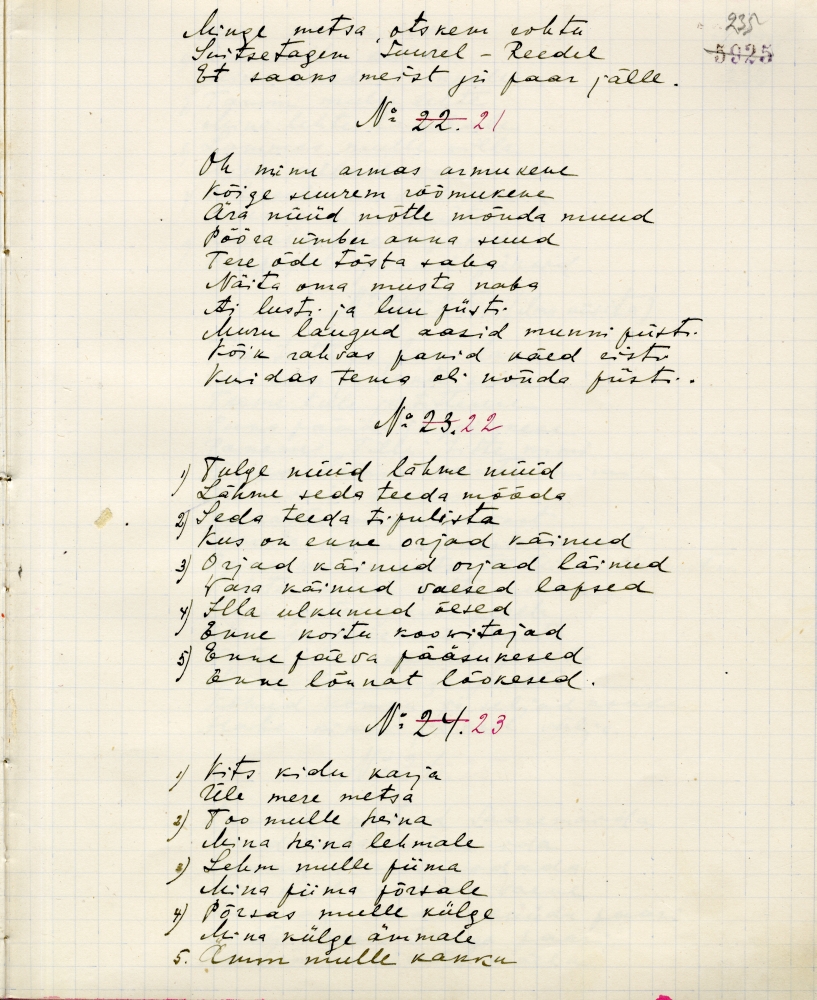 235
5925
Minge metsa, otskem rohtu
Suitsetagem Suurel-Reedel
Et saaks meist jri paar jälle.
№ 22. 21
Oh minu armas armukene
Kõige suurem rõõmukene
Ära nüüd mõtle mõnda muud
Pööra ümber anna suud
Tere õde tõsta saba
Näita oma musta naba
Ai lusti ja luu püsti
Muru laugud aasid munni püsti.
Kõik rahvas panid käed risti
Kuidas tema oli nõnda püsti.
№ 23. 22
1) Tulge nüüd lähme nüüd
Lähme seda teeda mööda
2) Seda teeda tipulista
Kus on enne orjad käinud
3) Orjad käinud orjad läinud
Vara käinud vaesed lapsed
4) Illa ulkunud õesed
Enne koitu koowitajad
5) Enne päeva pääsukesed
Enne lõunat lõokesed.
№ 24. 23
1) Kits kidu karja
Üle mere metsa
2) Too mulle heina
Mina heina lehmale
3) Lehm mulle piima
Mina piima põrsale
4) Põrsas mulle külge
Mina külge ämmale
5. Ämm mulle kakku